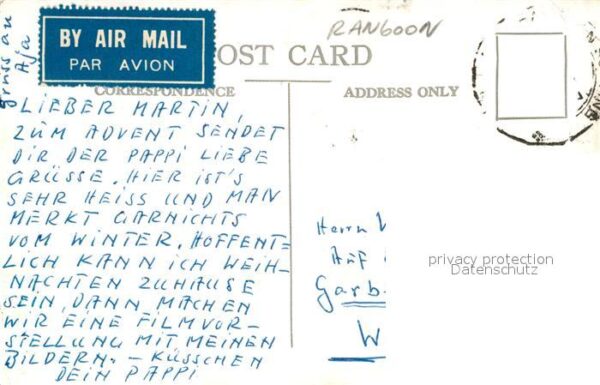 RANGOON
BY AIR MAIL
PAR AVION
POST CARD
CORRESPONDENCE
ADDRESS ONLY
Gruss an
Aja
LIEBER MARTIN,
ZUM ADVENT SENDET
DIR DER PAPPI LIEBE
GRÜSSE. HIER IST'S
SEHR HEISS UND MAN
MERKT GARNICHTS
VOM WINTER. HOFFENT-
LICH KANN ICH WEIH-
NACHTEN ZUHAUSE
SEIN, DANN MACHEN
WIR EINE FILMVOR-
STELLUNG MIT MEINEN
BILDERN. - KÜSSCHEN
DEIN PAPPI
Herrn
Auf
Garb
W
privacy protection
Datenschutz